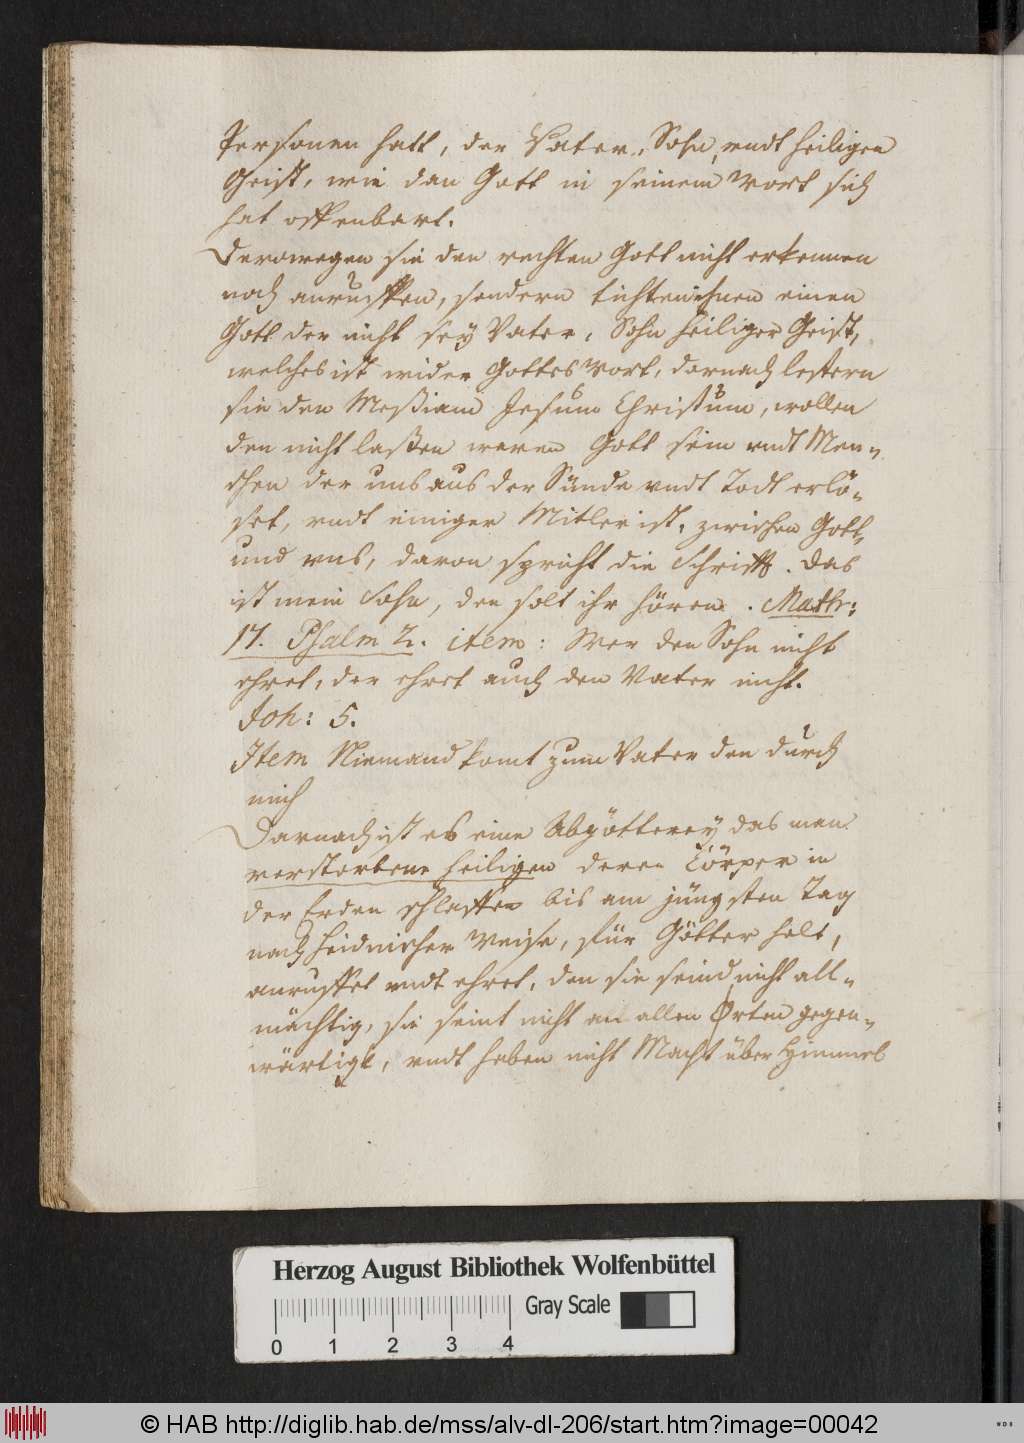 Personen hatt, der Vater, Sohn, undt heiligen
Geist, wie dan Gott in seinem Wort sich
hat offenbart.
Derowegen sie den rechten Gott nicht erkennen
noch anruffen, sondern tichten ihnen einen
Gott der nicht sey Vater, Sohn heiliger Geist,
welches ist wider Gottes Wort, darnach lestern
sie den Meßiam Jesum Christum, wollen
den nicht laßen waren Gott sein undt Men-
schen der uns aus der Sünde undt Todt erlö-
set, undt einiger Mitler ist, zwischen Gott
und uns, davon spricht die Schrifft. Das
ist mein Sohn, den solt ihr hören. Math:
17. Psalm 2. item: Wer den Sohn nicht
ehret, der ehret auch den Vater nicht.
Joh: 5.
Item Niemand komt zum Vater den durch
mich
Darnach ist es eine Abgötterey das man
verstorbene heiligen deren Cörper in
der Erden schlaffen bis am jüngsten Tag
nach heidnischer Weise, für Götter helt,
anruffet undt ehret, den sie seind nicht all-
mächtig, sie seint nicht an allen Orten gegen-
wärtigk, undt haben nicht Macht über Himmel
Herzog August Bibliothek Wolfenbüttel
0 1 2 3 4 Gray Scale
© HAB http://diglib.hab.de/mss/alv-dl-206/start.htm?image=00042